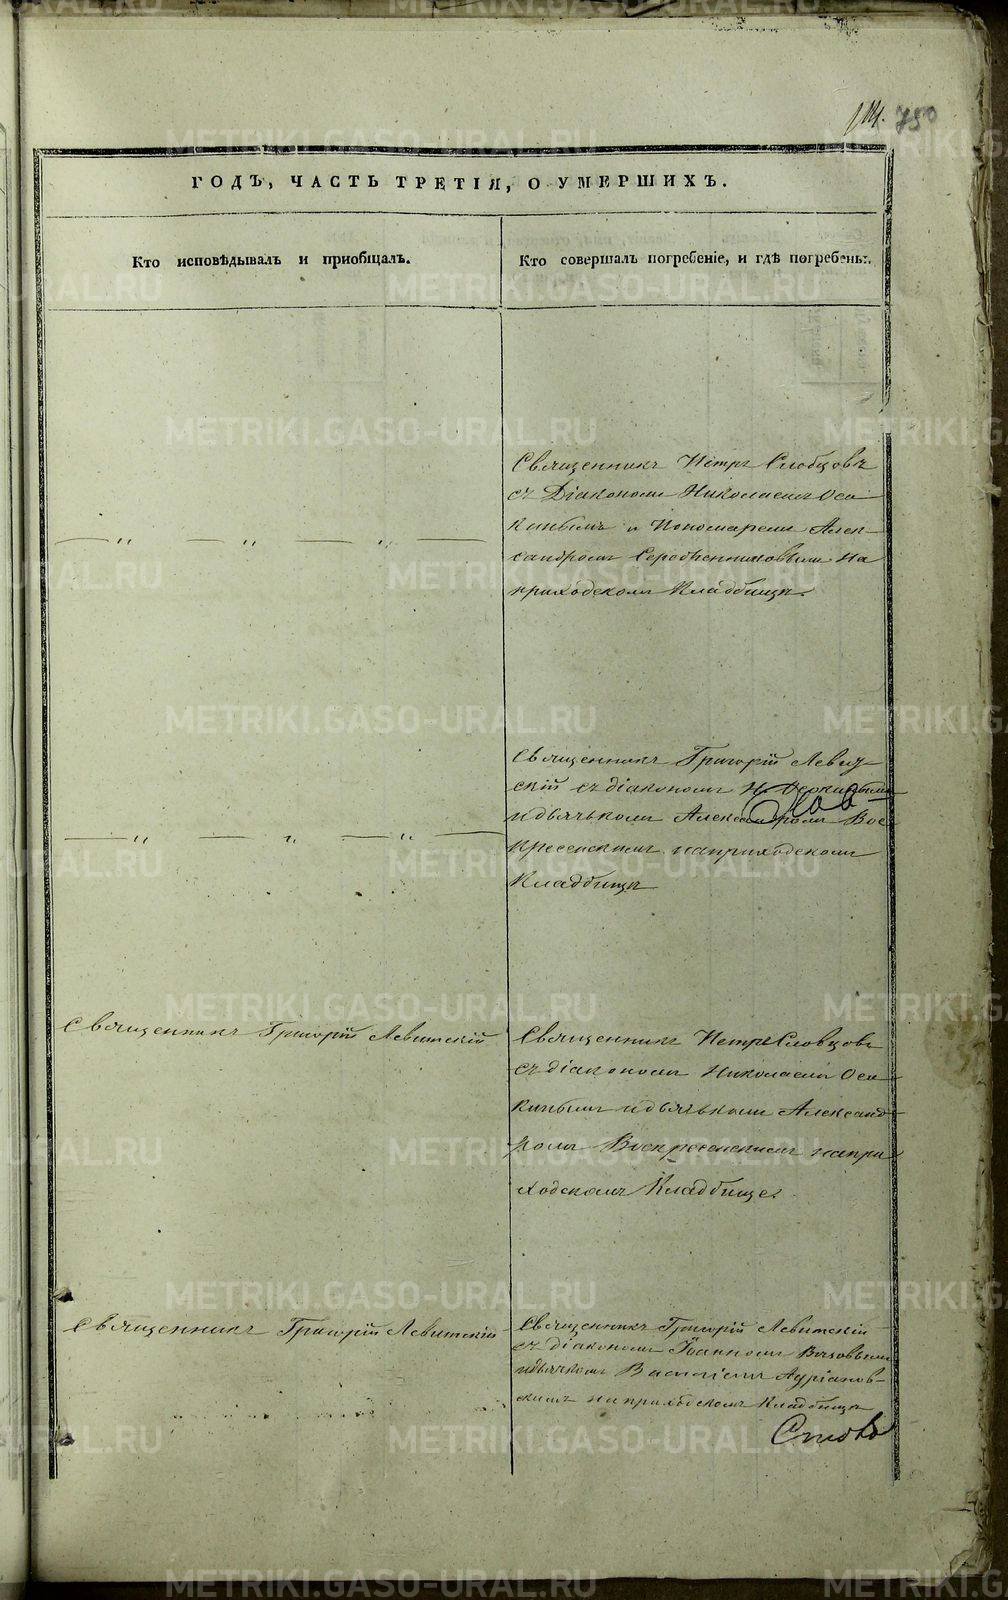 750
ГОДЪ, ЧАСТЬ ТРЕТІЯ, О УМЕРШИХЪ.
Кто исповѣдывалъ и пріобщалъ.
Кто совершалъ погребеніе, и гдѣ погребены.
Священникъ Петръ Словцовъ
съ Діакономъ Николаемъ Оса
кинымъ и Пономаремъ Алек-
сандромъ Серебренниковымъ на
приходскомъ Кладбищѣ.
Священникъ Григорій Левит-
скій съ діакономъ
и дьячькомъ Александромъ Вос
кресенскимъ на приходскомъ
Кладбищѣ
Священникъ Григорій Левитскій
Священникъ Петръ Словцовъ
съ діакономъ Николаемъ Оса
кинымъ и дьячькомъ Александ-
ромъ Воскресенскимъ на при
ходскомъ Кладбище.
Священникъ Григорій Левитскій
Священникъ Григорій Левитскій
съ діакономъ Іоанномъ
и дьячкомъ Василіемъ Адріанов-
скимъ на приходскомъ Кладбищѣ
METRIKI.GASO-URAL.RU